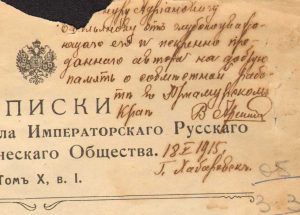 глубокоуважа-
ющаго его и искренно пре-
даннаго автора на добрую
память о совместной рабо-
те в Приамурском
крае В. Арсеньев
ПИСКИ
ла Императорскаго Русскаго
ческаго Общества.
18 X 1915.
г. Хабаровск.
Томъ X, в. I.